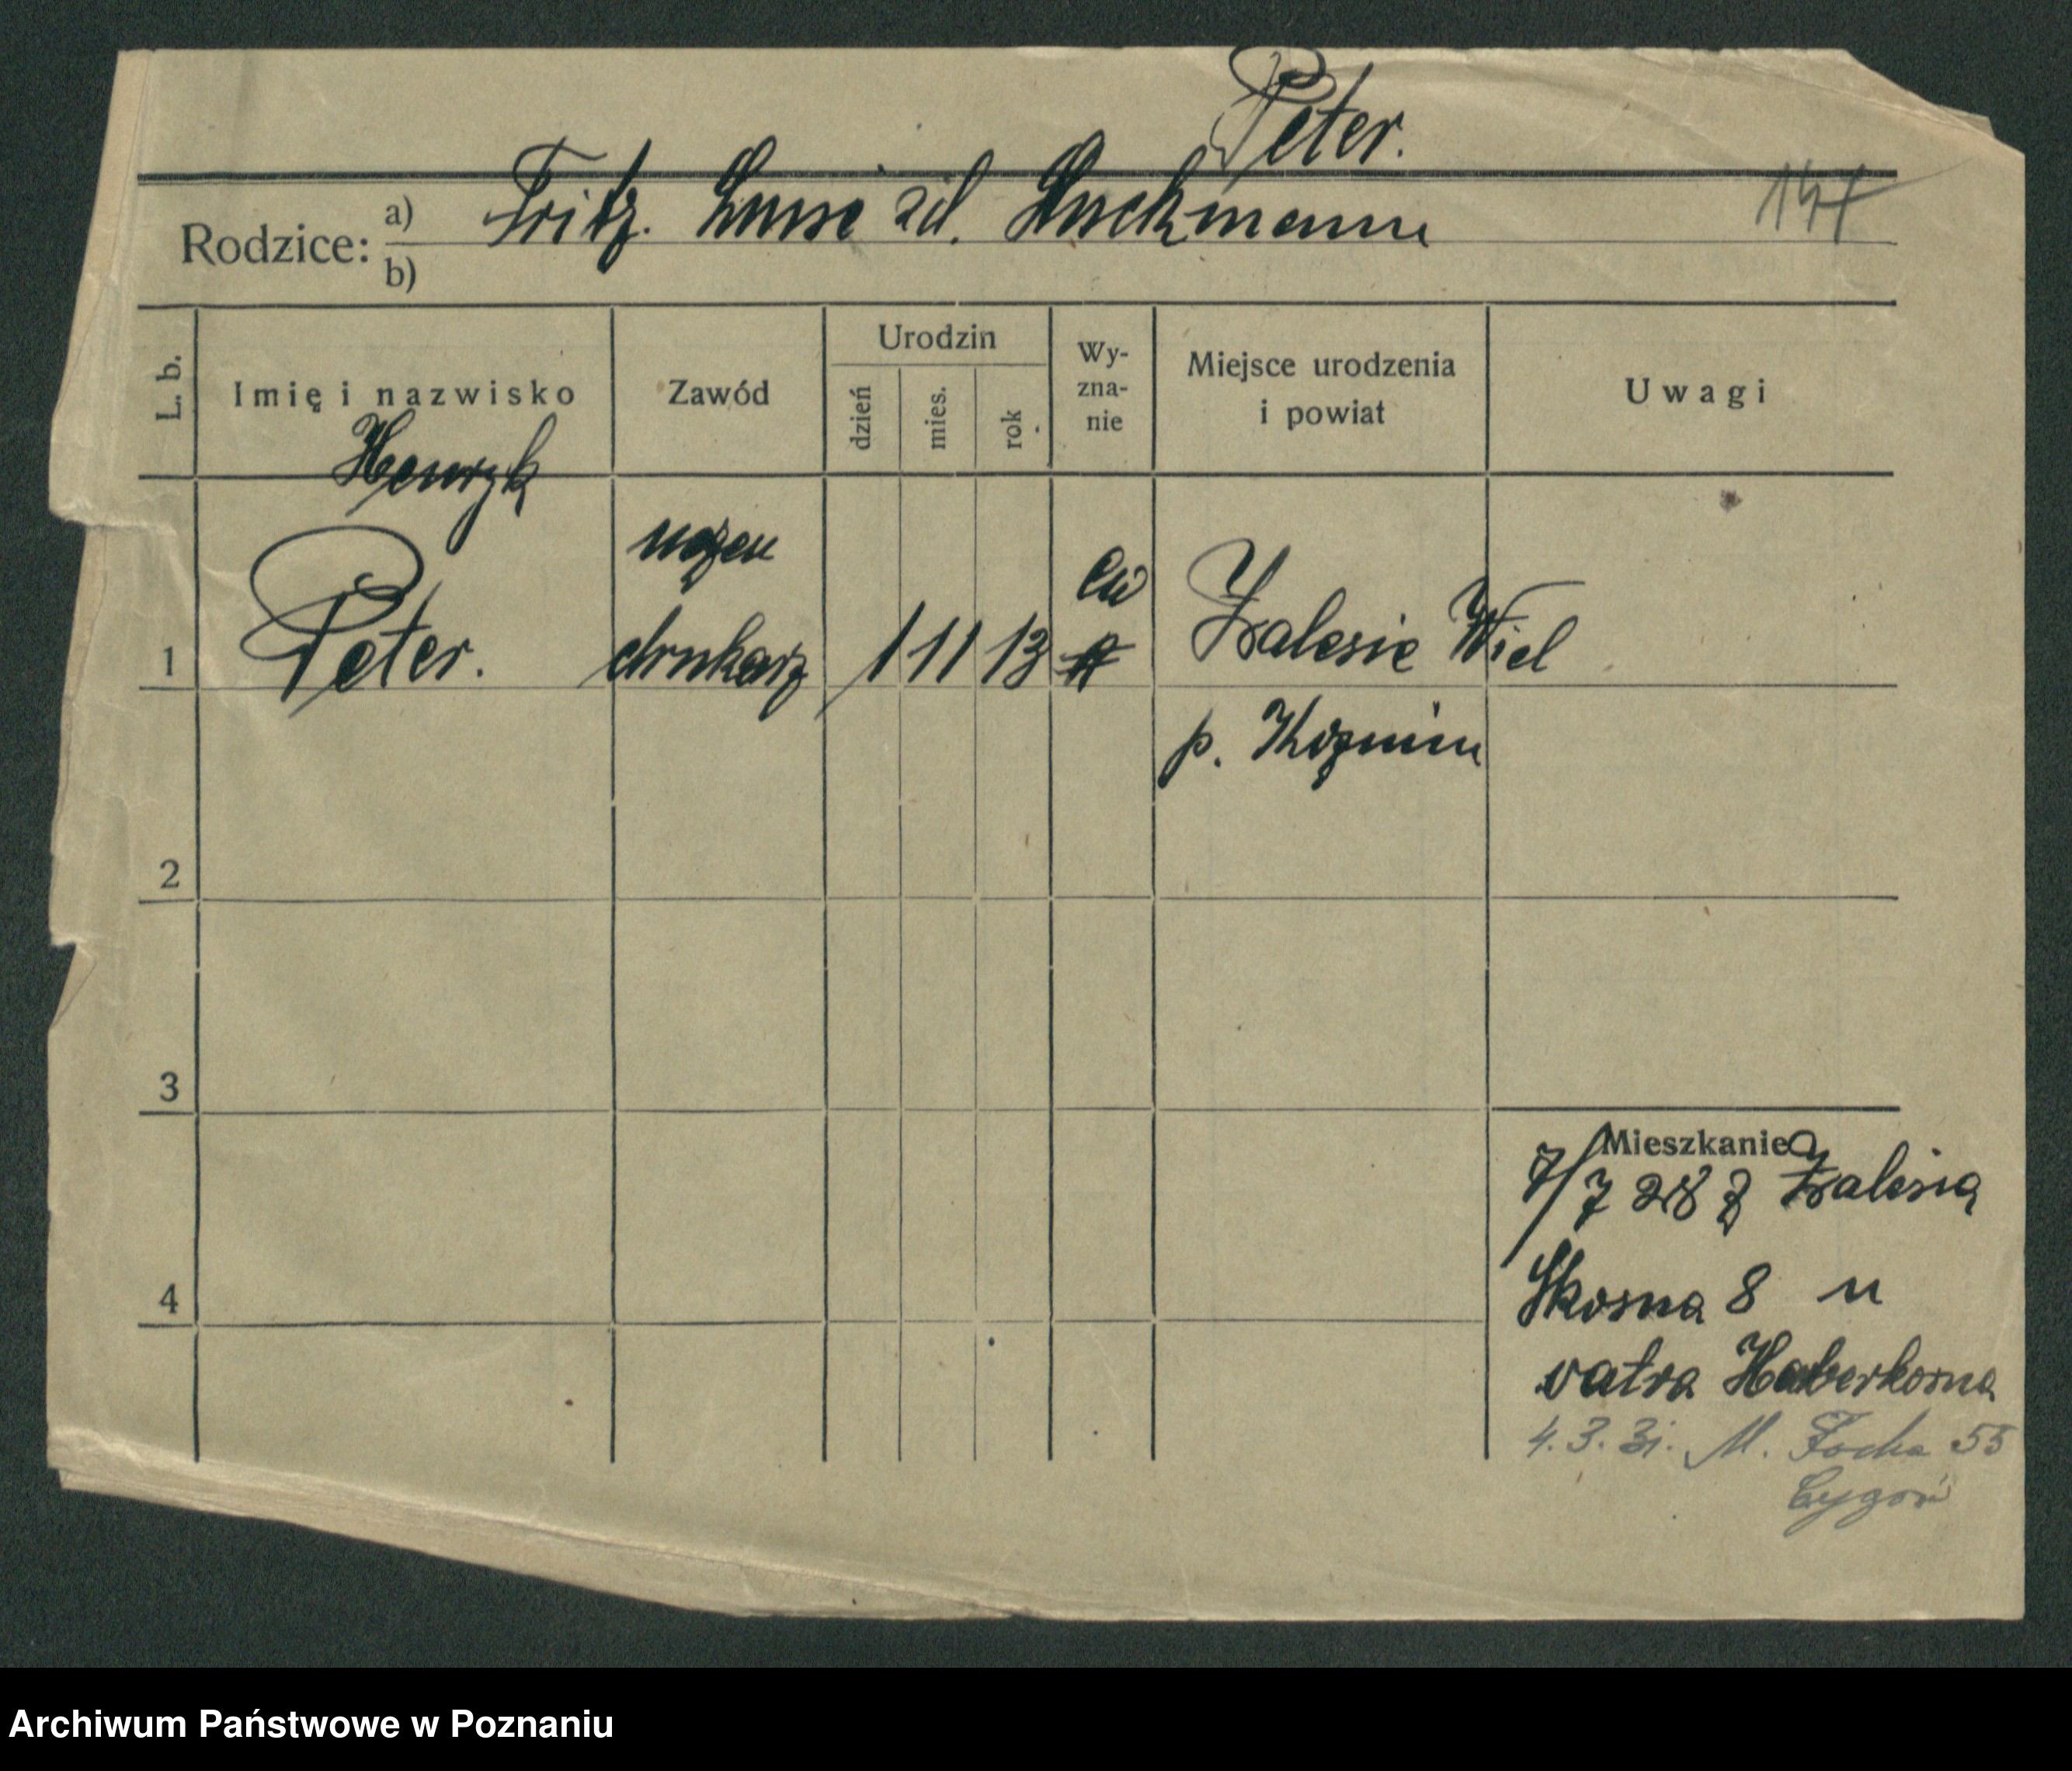 Peter.
147
Rodzice: a) Fritz. Luise zd.
b)
L. b.
Imię i nazwisko
Zawód
Urodzin
dzień
mies.
rok
Wy-
zna-
nie
Miejsce urodzenia
i powiat
Uwagi
Henryk
uczeń
ew
1 Peter. drukarz 1 11 13 Zalesie Wiel
p. Koźmin
2
3
4
Mieszkanie
7/7 28 z Zalesia
Skosna 8 u
Haberkorna
4.3.31. M. Focha 55
Archiwum Państwowe w Poznaniu